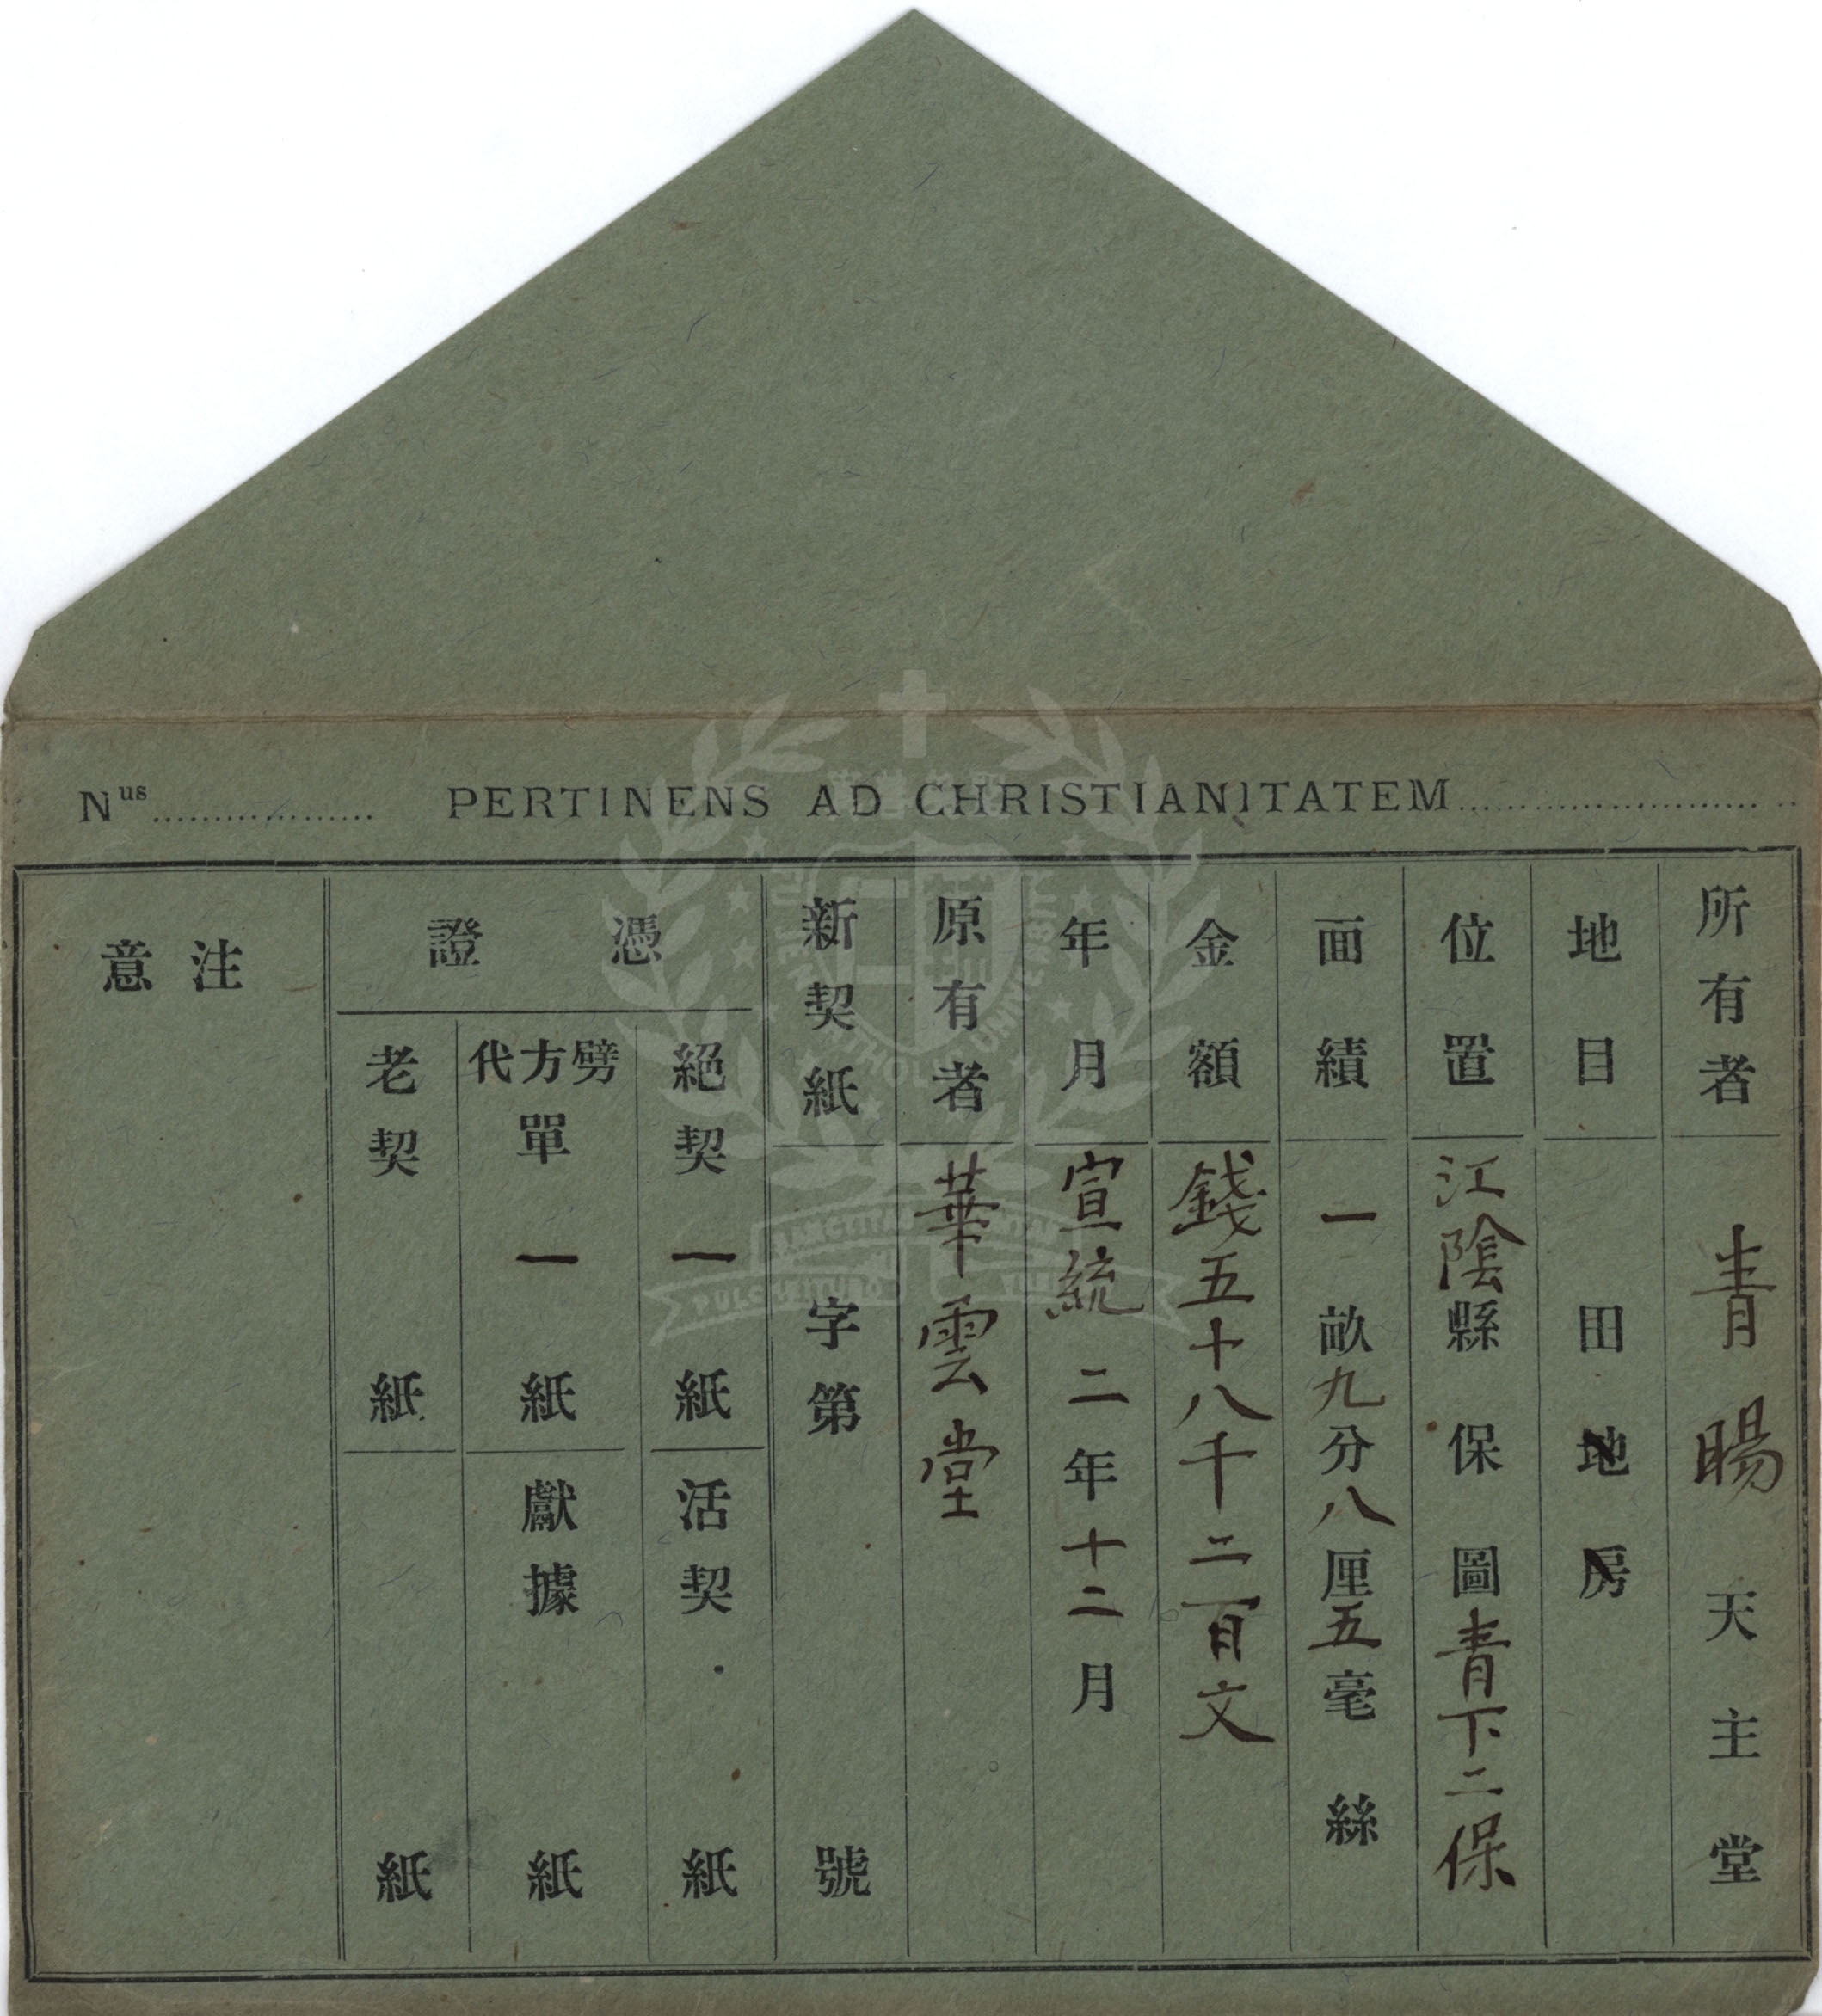 Nus.................. PERTINENS AD CHRISTIANITATEM..........................
所有者 青暘天主堂
地目 田地房
位置 江陰縣保圖青下二保
面績 一畝九分八厘五毫絲
金額 錢五十八千二百文
年月 宣統二年十二月
原有者 華雲堂
新契紙 字第 號
憑證
絕契 一紙 活契 紙
劈方代單 一紙 獻據 紙
老契 紙 紙
注意